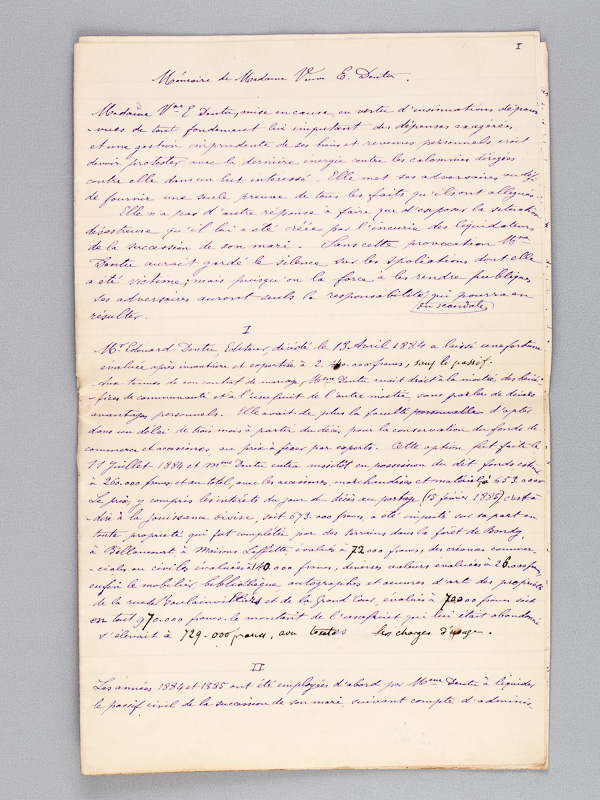 I
Mémoire de Madame Veuve E. Dentu.
Madame Vve E Dentu, mise en cause, en vertu d'insinuations dépour-
-vues de tout fondement lui imputant des dépenses exagérées
et une gestion imprudente de ses biens et revenus personnels croit
devoir protester avec la dernière énergie contre les calomnies dirigées
contre elle dans un but intéressé. Elle met ses adversaires au défi
de fournir une seule preuve de tous les faits qu'ils ont allégués.
Elle n'a pas d'autre réponse à faire que d'exposer la situation
désastreuse qu'il lui a été créée par l'incurie des liquidateurs
de la succession de son mari. Sans cette provocation Mme
Dentu aurait gardé le silence sur les spoliations dont elle
a été victime; mais puisqu'on la force à les rendre publiques
ses adversaires auront seuls la responsabilité qui pourra en
du scandale
résulter.
I
Mr Edouard Dentu, Editeur, décédé le 13 Avril 1884 a laissé une fortune
évaluée après inventaire et expertise à 2. 40.000 francs, sauf le passif.
Aux termes de son contrat de mariage, Mme Dentu avait droit à la moitié des béné-
-fices de communauté et à l'usufruit de l'autre moitié, sans parler de divers
avantages personnels. Elle avait de plus la faculté personnelle d'opter
dans un délai de trois mois à partir du décès, pour la conservation du fonds de
commerce et accessoires, au prix à fixer par experts. Cette option fut faite le
11 Juillet 1884 et Mme Dentu entra aussitôt en possession du dit fonds
à 260.000 francs et au total, avec les accessoires, marchandises et matériel, à 653.000
Le prix, y compris les intérêts du jour du décès au partage (15 février 1885) c'est à
dire à la jouissance divise, soit 673.000 francs a été imputé sur sa part en
toute propriété qui fut complétée par des terrains dans la forêt de Bondy,
à Billancourt à Maisons Laffitte évalués à 72.000 francs, des créances commer-
-ciales ou civiles évaluées à 140.000 francs, diverses valeurs évaluées à 26.000 fcs,
enfin le mobilier, bibliothèque autographes et oeuvres d'art des propriétés
de la rue de Boulainvilliers et de la Grand Cour, évalués à 70.000 francs soit
en tout 970.000 francs. le montant de l'usufruit qui lui était abandonné
s'élevait à 729.000 francs, avec toutes les charges d'usage.
II
Les années 1884 et 1885 ont été employées d'abord par Mme Dentu à liquider
le passif civil de la succession de son mari, suivant compte d'adminis-